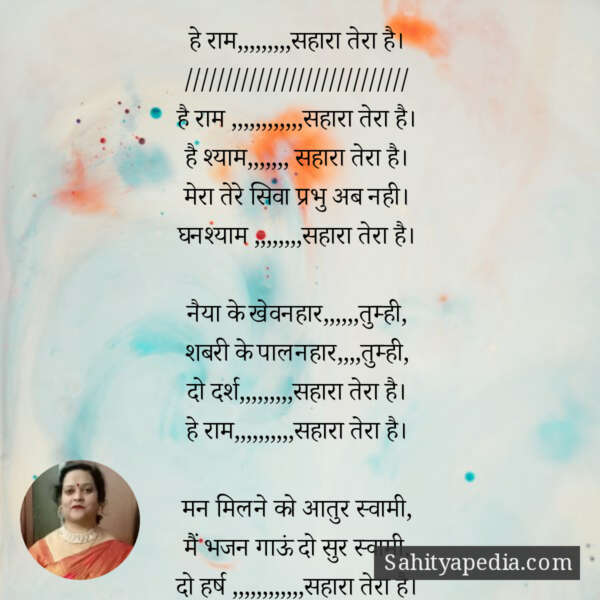 हे राम,,,,,,,,,सहारा तेरा है।
////////////////////////////
है राम ,,,,,,,,,,,,सहारा तेरा है।
है श्याम,,,,,,, सहारा तेरा है।
मेरा तेरे सिवा प्रभु अब नही।
घनश्याम ,,,,,,,,सहारा तेरा है।
नैया के खेवनहार,,,,,,तुम्ही,
शबरी के पालनहार,,,,तुम्ही,
दो दर्श,,,,,,,,,सहारा तेरा है।
हे राम,,,,,,,,,,सहारा तेरा है।
मन मिलने को आतुर स्वामी,
मैं भजन गाऊं दो सुर स्वामी
दो हर्ष ,,,,,,,,,,,,सहारा तेरा है।
Sahityapedia.com